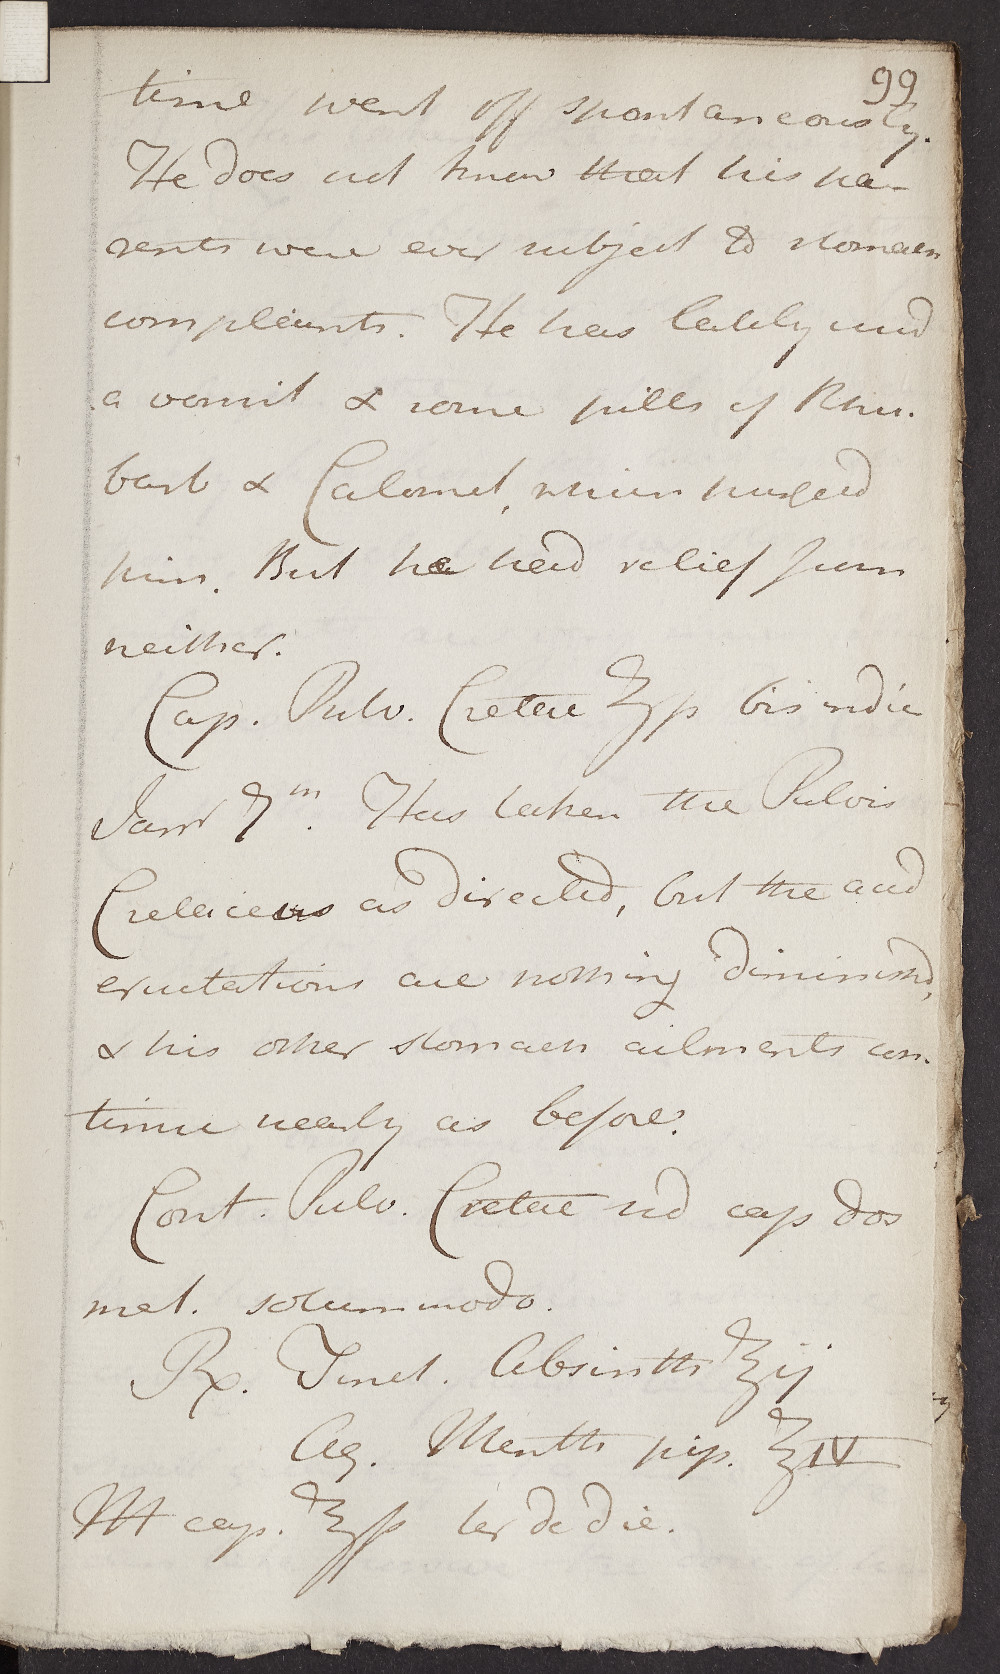 99
time went off spontaneously.
He does not know that his pa-
rents were ever subject to stomach
complaints. He has lately used
a vomit & some pills of Rhu-
barb & Calomel, which purged
him. But he had relief from
neither.
Cap. Pulv. Cretae ʒſs bis in die
Janr 7th. Has taken the Pulvis
Cretaceus as directed, but the acid
eructations are nothing diminishd,
& his other stomach ailments con-
tinue nearly as before.
Cont. Pulv. Cretae sed cap dos
mat. solummodo.
Rx. Tinct. Absinth ʒij
Aq. Menth pip. ℥IV
M cap. ℥ſs ter de die.